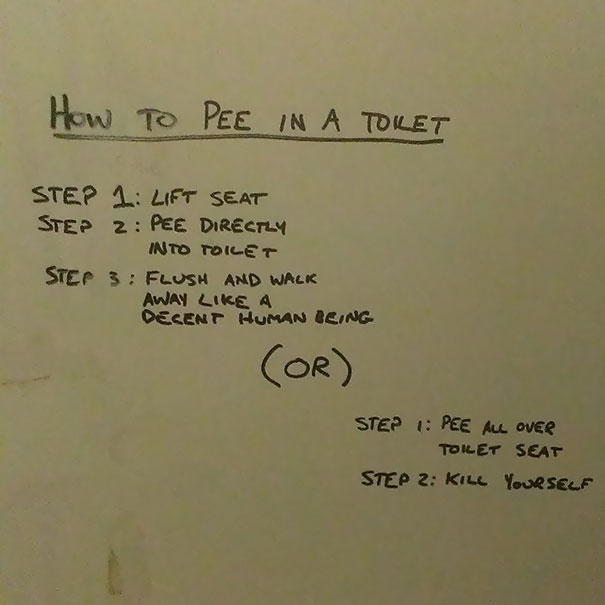 HOW TO PEE IN A TOILET
STEP 1: LIFT SEAT
STEP 2: PEE DIRECTLY
INTO TOILET
STEP 3: FLUSH AND WALK
AWAY LIKE A
DECENT HUMAN BEING
(OR)
STEP 1: PEE ALL OVER
TOILET SEAT
STEP 2: KILL YOURSELF